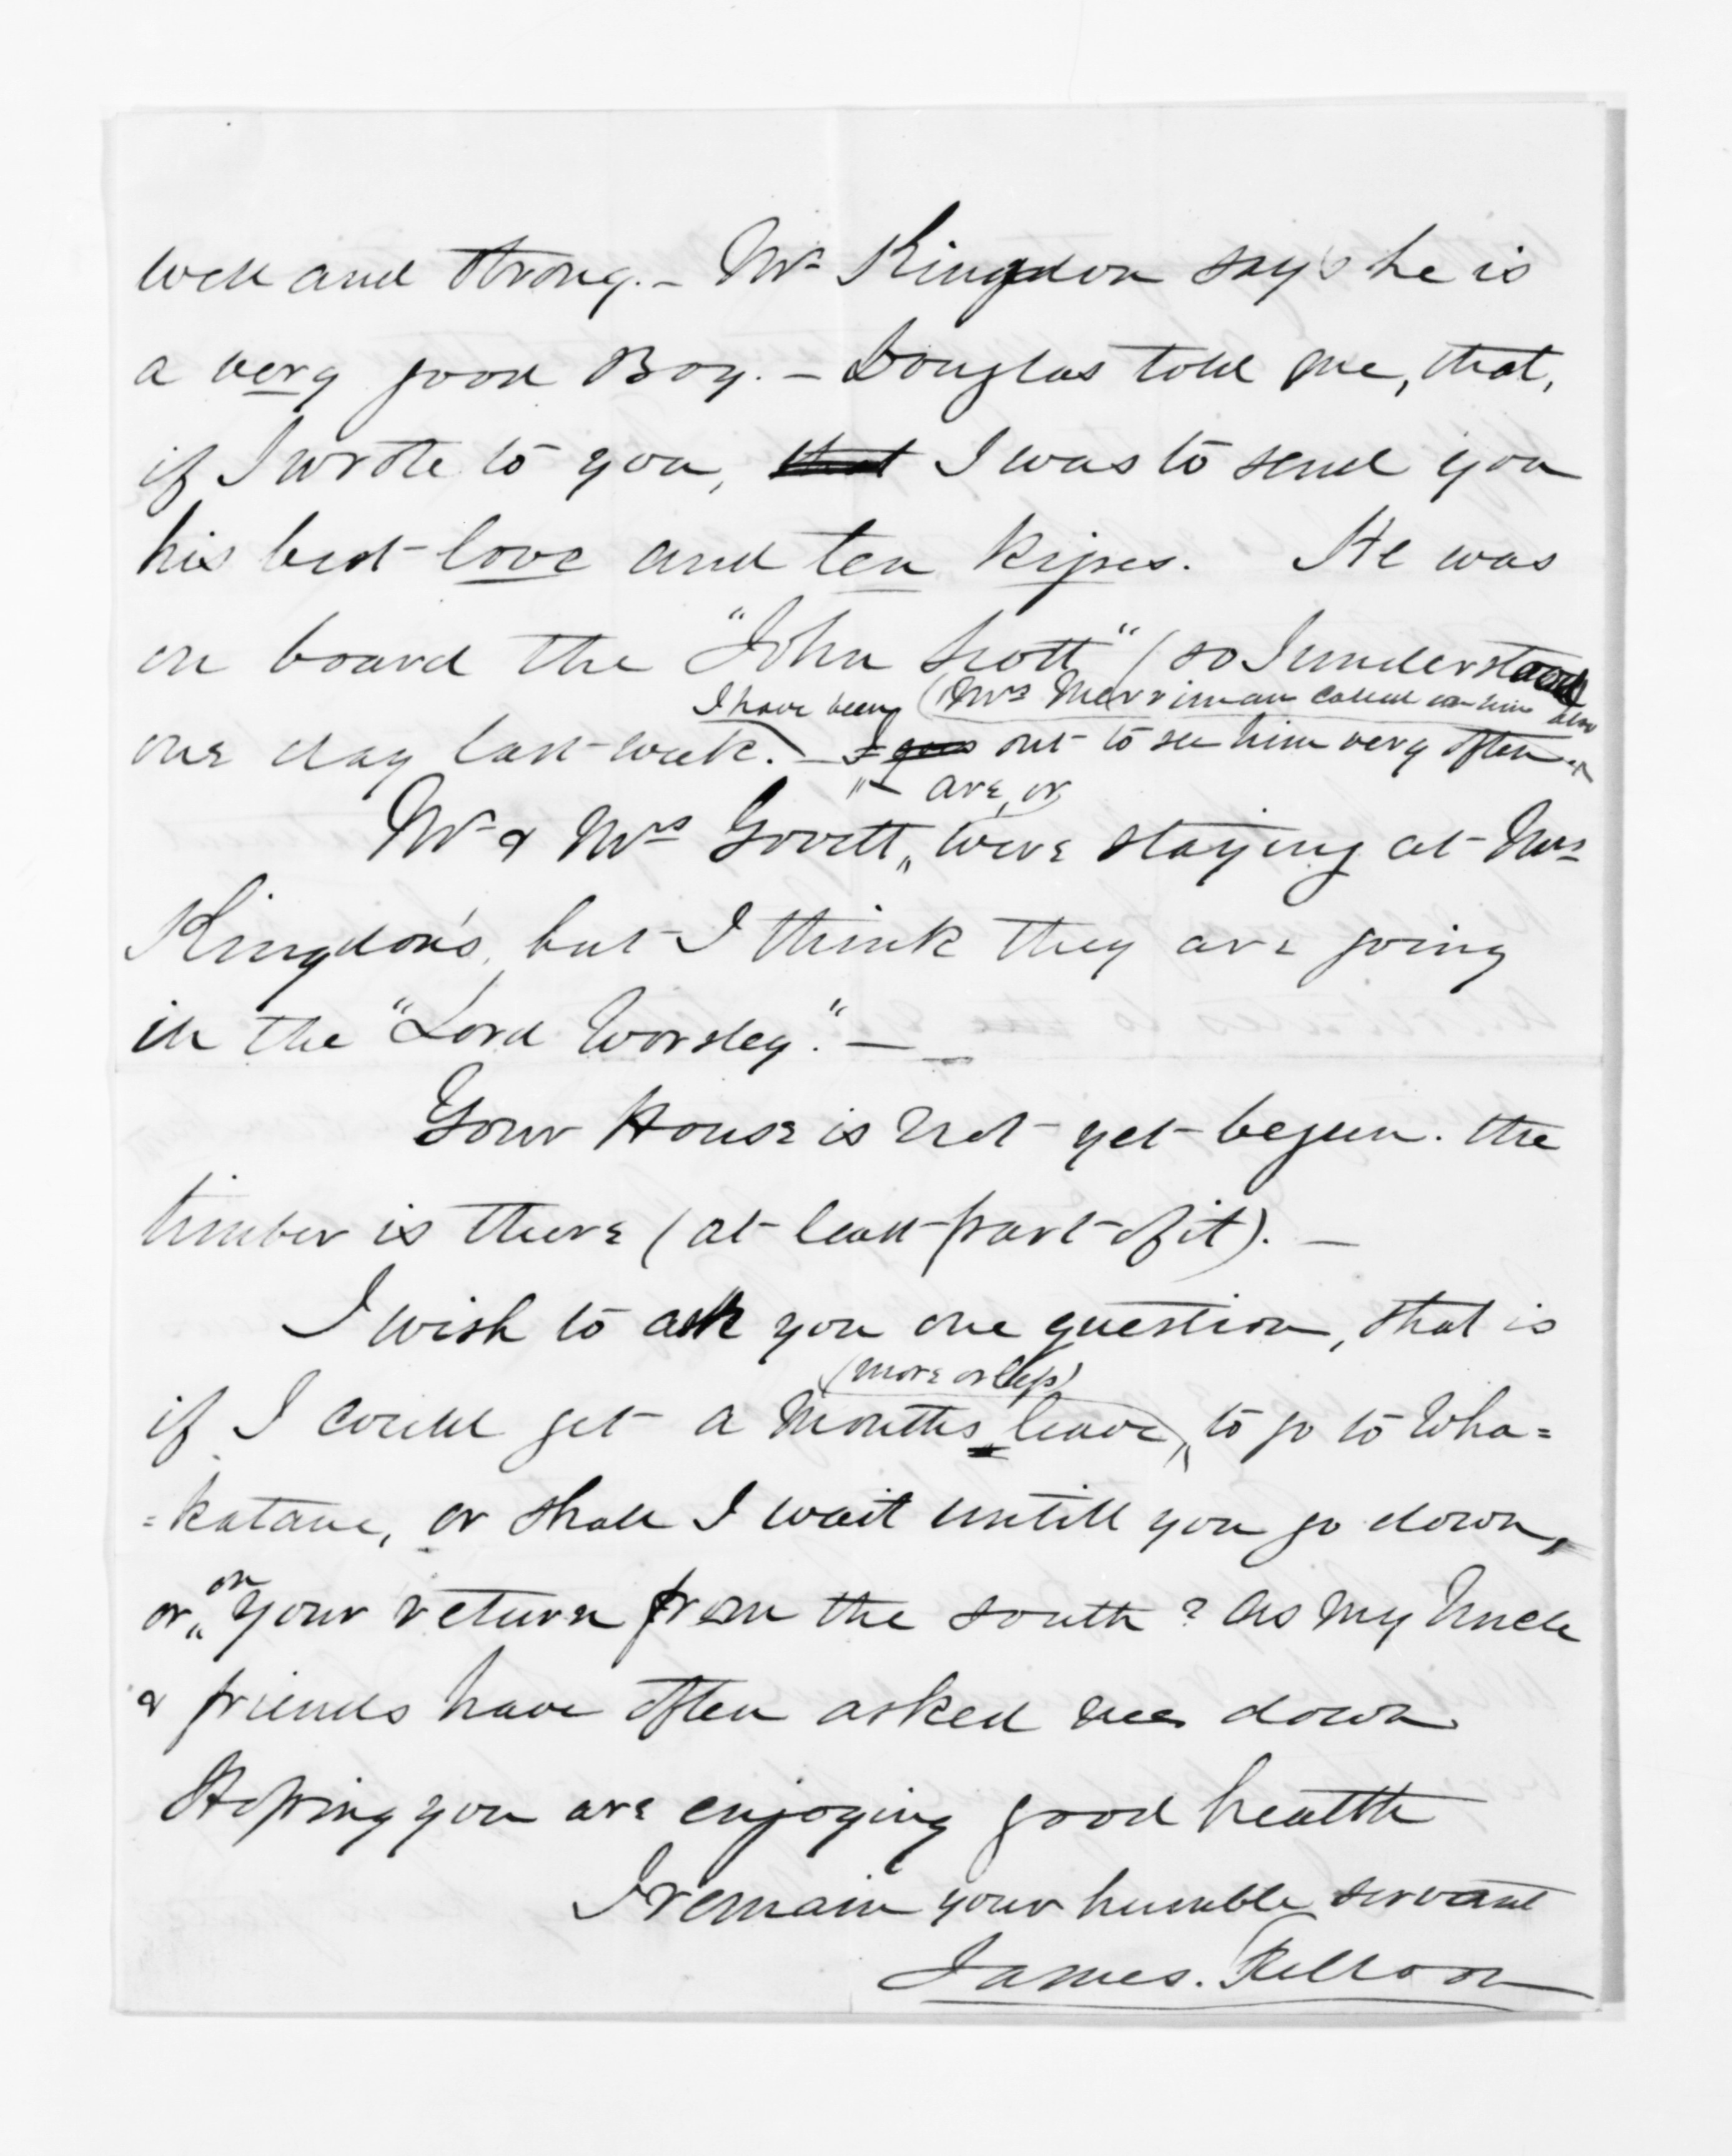 well and strong. - Mr Kingdon say's he is
a very good Boy. - Douglas told me, that,
if I wrote to you, that I was to send you
his best love and ten kisses. He was
on board the "John Scott" (so I understand
I have been (Mrs Merriman called on him also
one day last week. - I goes out to see him very often
are, or
Mr & Mrs Govett, were staying at Mrs
Kingdon's, but I think they are going
in the "Lord Worsley." -
Your House is not yet begun. the
timber is there (at least part of it). -
I wish to ask you one question, that is
(more or less)
if I could get a months leave, to go to Wha=
=katane, or shall I wait untill you go down,
on
or, your return from the south? as my Uncle
& friends have often asked me down
Hoping you are enjoying good health
I remain your humble servant
James.